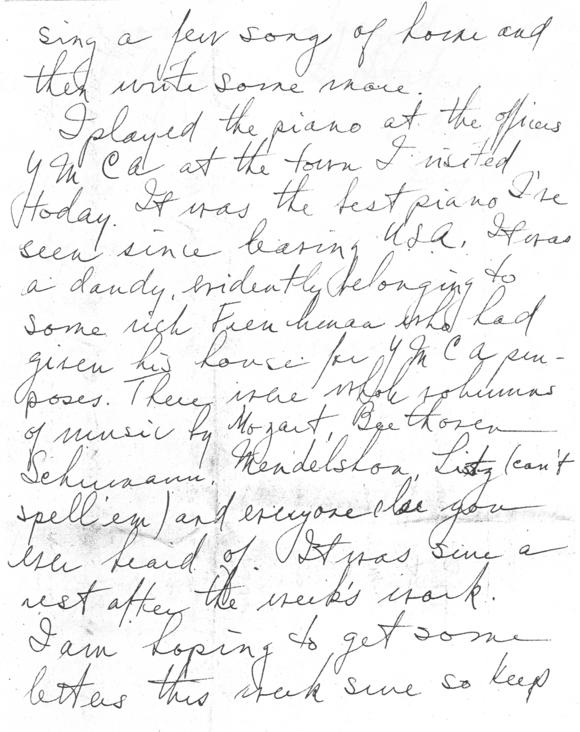 sing a few song of home and
then write some more.
I played the piano at the officers
Y M C A at the town I visited
today. It was the best piano I've
seen since leaving U.S.A. It was
a dandy, evidently belonging to
some rich Frenchman who had
given his house for Y M C A pur-
poses. There were whole volumns
of music by Mozart, Beethoven
Schumann, Mendelshon, Listz (can't
spell 'em) and everyone else you
ever heard of. It was sure a
rest after the week's work.
I am hoping to get some
letters this week sure so keep